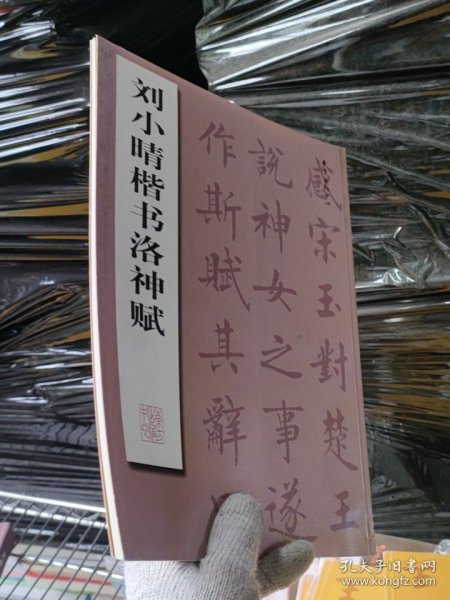 刘小晴楷书洛神赋
感宋玉對楚王
說神女之事遂
作斯賦其辭
孔夫子旧书网
www.kongfz.com